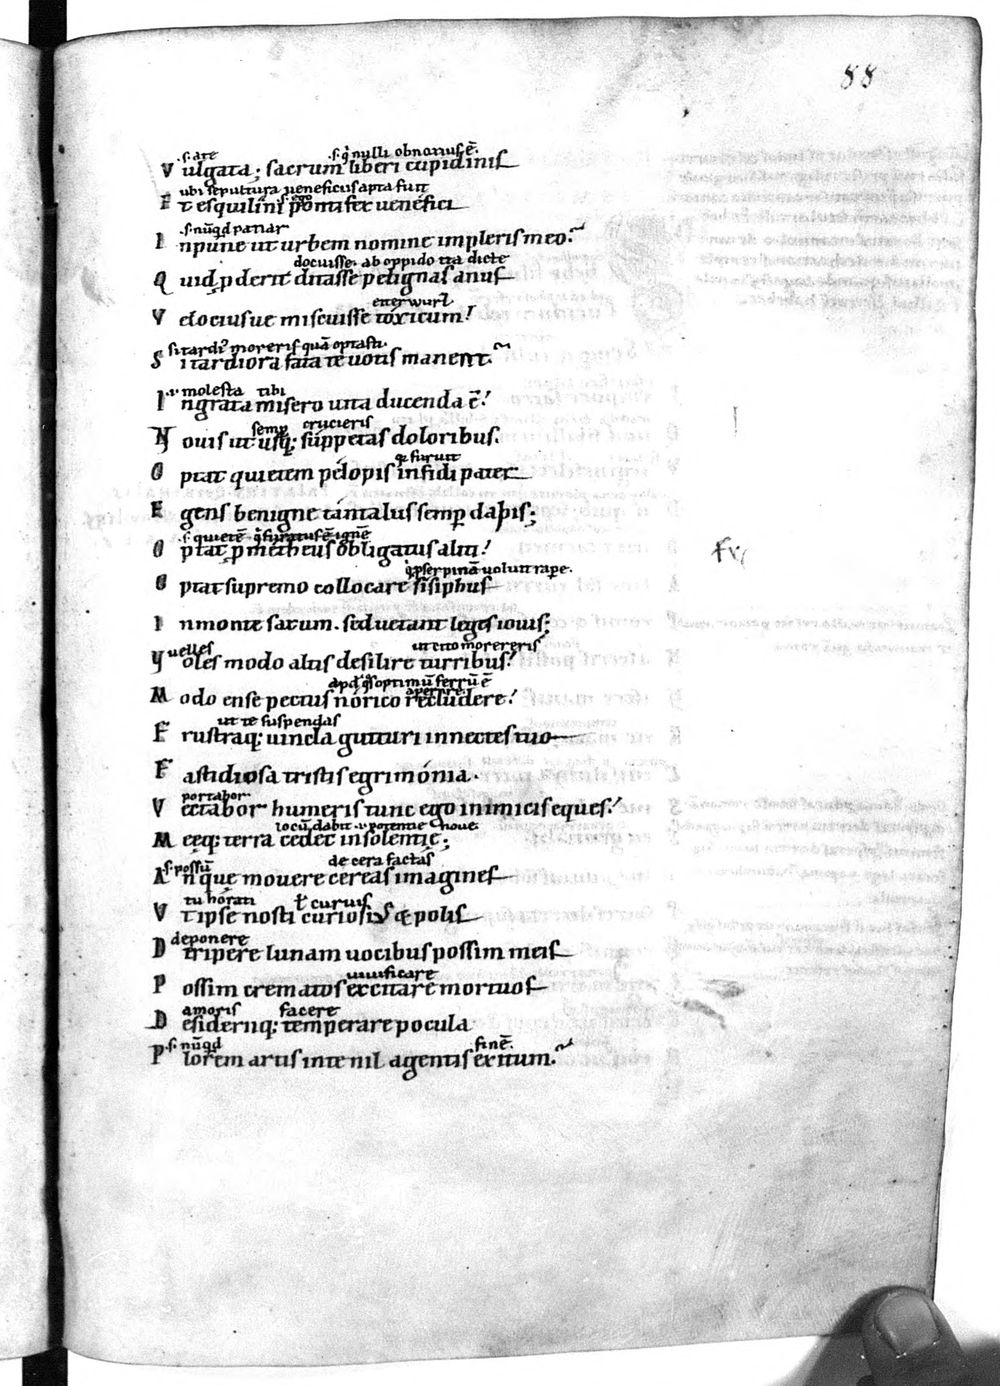 88
.s. arte .s. q' nulli obnoxius ē.
Vulgata; sacrum liberi cupidinis
ubi sepultura ueneficiis apta fuit
Et esquilini pontifex uenefici
.s. nūqd patiar
Inpune ut urbem nomine impleris meo?
docuisse. ab oppido ita dicte
Quid ꝓderit ditasse pelignas anus
eitterwurz
Velociusue miscuisse toxicum!
si tardi' moreris quā optasti.
Si tardiora fata te uotis manent?
molesta tibi
Ingrata misero uita ducenda ē!
semꝑ crucieris
Nouis ut usq; suppetas doloribus.
q furuit
Optat quietem pelopis infidi pater
Egens benigne tantalus semꝑ dapis;
.s. quietē q furatus ē ignē
Optat ꝓmetheus obligatus aliti!
q ꝓserpinā uoluit rape.
Optat supremo collocare sisiphus
In monte saxum. sed uetant leges iouis;
uelles ut cito morereris
Voles modo altis desilire turribus!
apd qs optimū ferrū ē
aperire.
Modo ense pectus norico recludere!
ut te suspendas
Frustraq; uincla gutturi innectes tuo
Fastidiosa tristis egrimonia.
portabor
Vectabor humeris tunc ego inimicis eques!
locū dabit noue
Meęq; terra cedet insolentię;
.s. possū de cera factas
An quę mouere cereas imagines
tu horati ł curuis
Vt ipse nosti curiosis & polis
deponere
Deripere lunam uocibus possim meis
uiuificare
Possim crematos excitare mortuos
amoris facere
Desideriiq; temperare pocula
.s. nūqd finē.
Plorem artis inte nil agentis exitum?